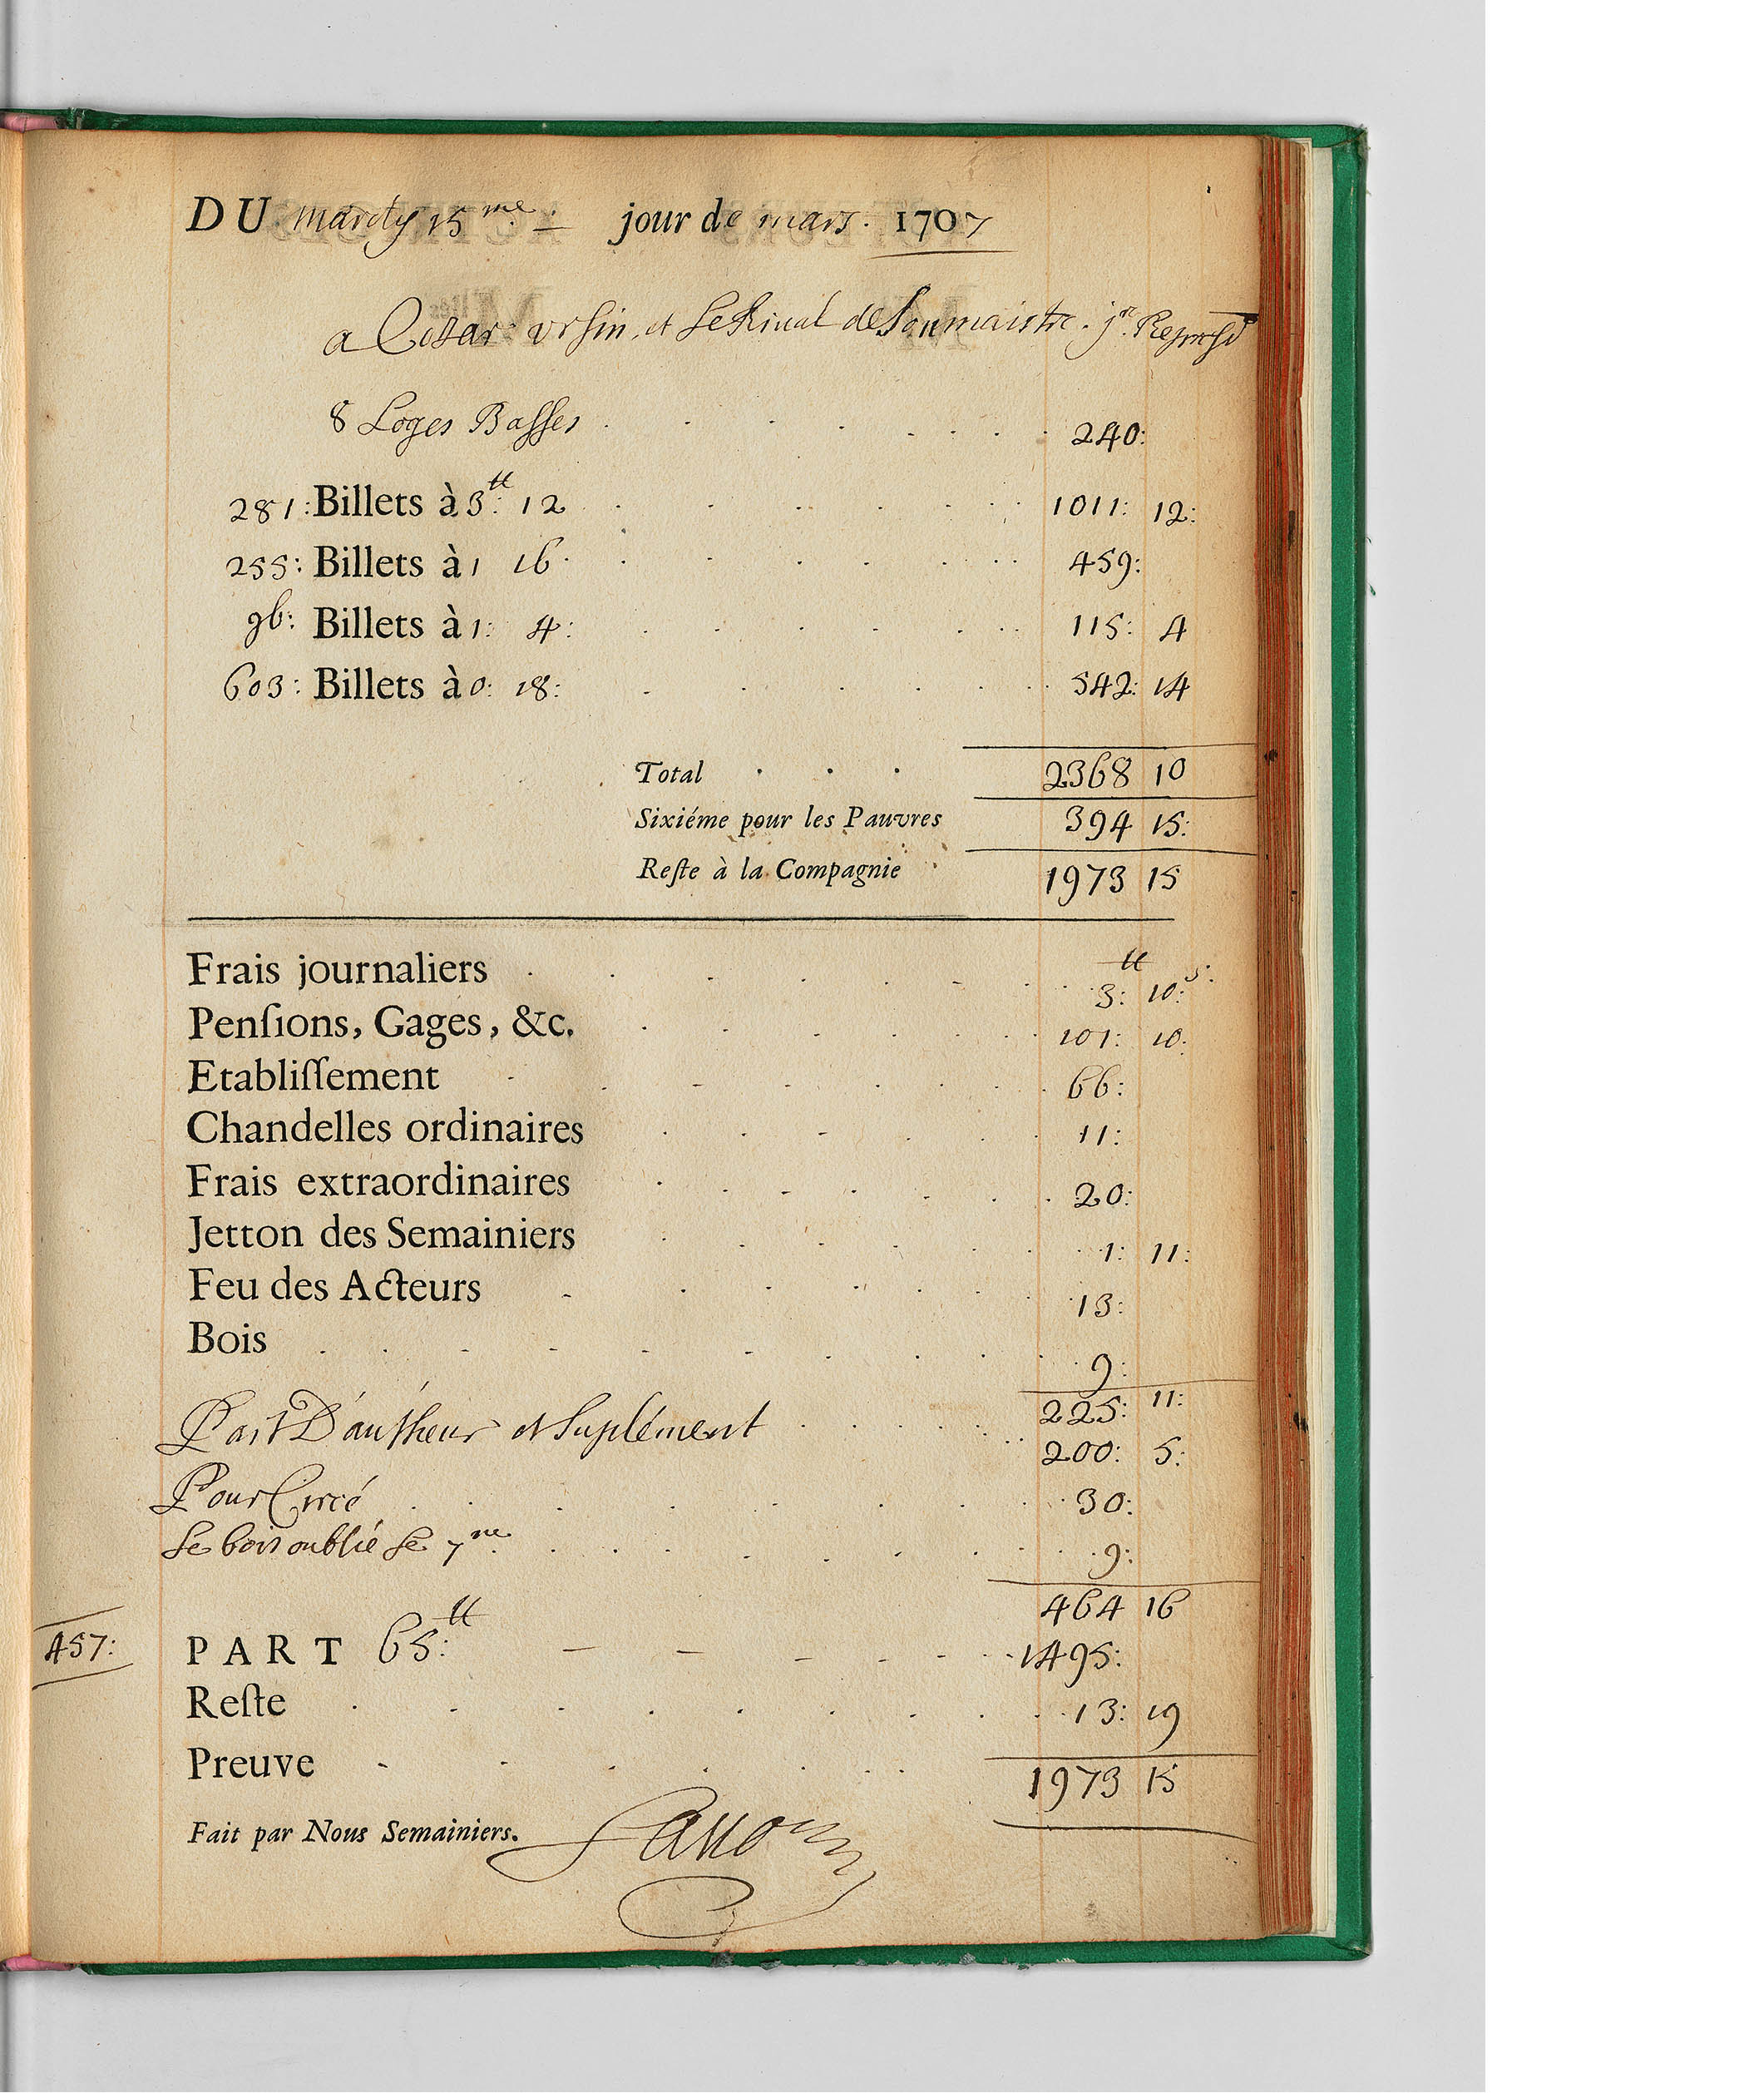 DU mardy 15me. jour de mars. 1707
a Cesar ursin, et Le Rival de Son maistre. jre. Repnson
8 Loges Basses 240:
281: Billets à 3tt: 12 1011: 12:
255: Billets à 1 16 459:
96: Billets à 1: 4: 115: 4
603: Billets à 0: 18: 542: 14
Total 2368 10
Sixiéme pour les Pauvres 394 15:
Reſte à la Compagnie 1973 15
Frais journaliers 3:tt 10:s:
Penſions, Gages, &c. 101: 10:
Etabliſſement 66:
Chandelles ordinaires 11:
Frais extraordinaires 20:
Jetton des Semainiers 1: 11:
Feu des Acteurs 13:
Bois 9:
225: 11:
Part D'autheur et Suplément 200: 5:
Pour Circé 30:
Le bois oublié Le 7me. 9:
464 16
457: PART 65:tt 1495:
Reſte 13: 19
Preuve 1973 15
Fait par Nous Semainiers.